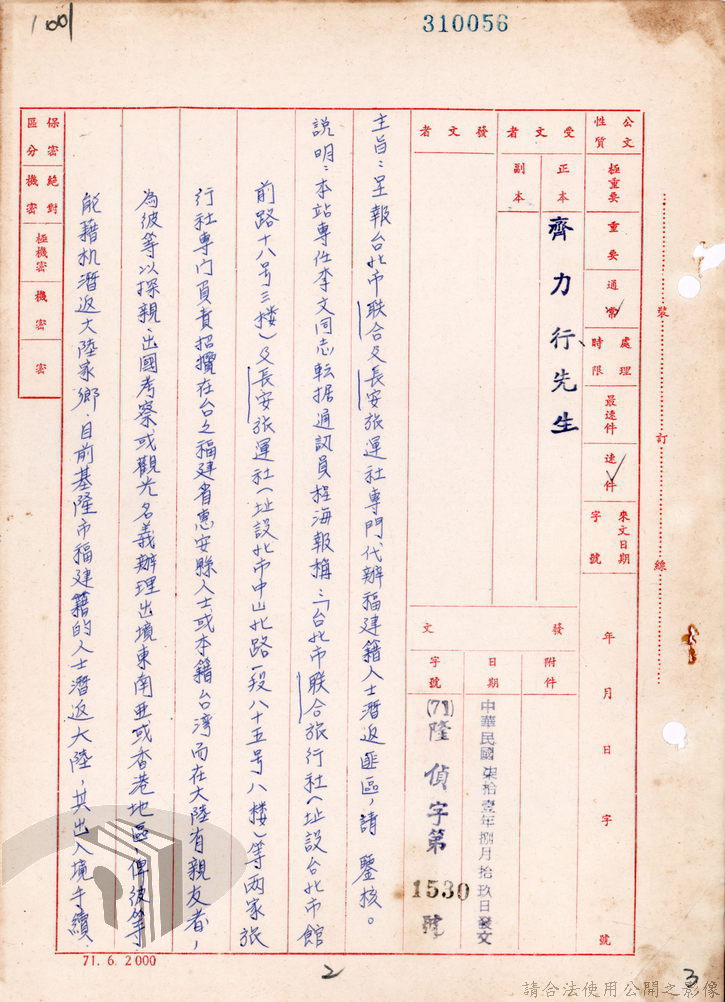 1001
310056
裝 訂 線
公文性質 極重要 重要 通常 處理時限 最速件 速件 來文日期字號 年 月 日 字 號
受文者 正本 副本
齊力行先生
發文者
發文 附件 日期 字號
中華民國柒拾壹年捌月拾玖日發文
(71)隆偵字第1530號
保密區分 絕對機密 極機密 機密 密
主旨：呈報台北市联合及長安旅運社專門代辦福建籍人士潛返匪區，請 鑒核。
說明：本站專任李文同志転据通訊員程海報稱：「台北市联合旅行社（址設台北市館
前路十八号三楼）及長安旅運社（址設北市中山北路一段八十五号八楼）等兩家旅
行社專门負責招攬在台之福建省惠安縣人士或本籍台湾而在大陸有親友者，
為彼等以探親、出國考察或觀光名義辦理出境東南亜或香港地區，俾彼等
能藉机潛返大陸家鄉，目前基隆市福建籍的人士潛返大陸，其出入境手續
71. 6. 2000
2
3
請合法使用公開之影像